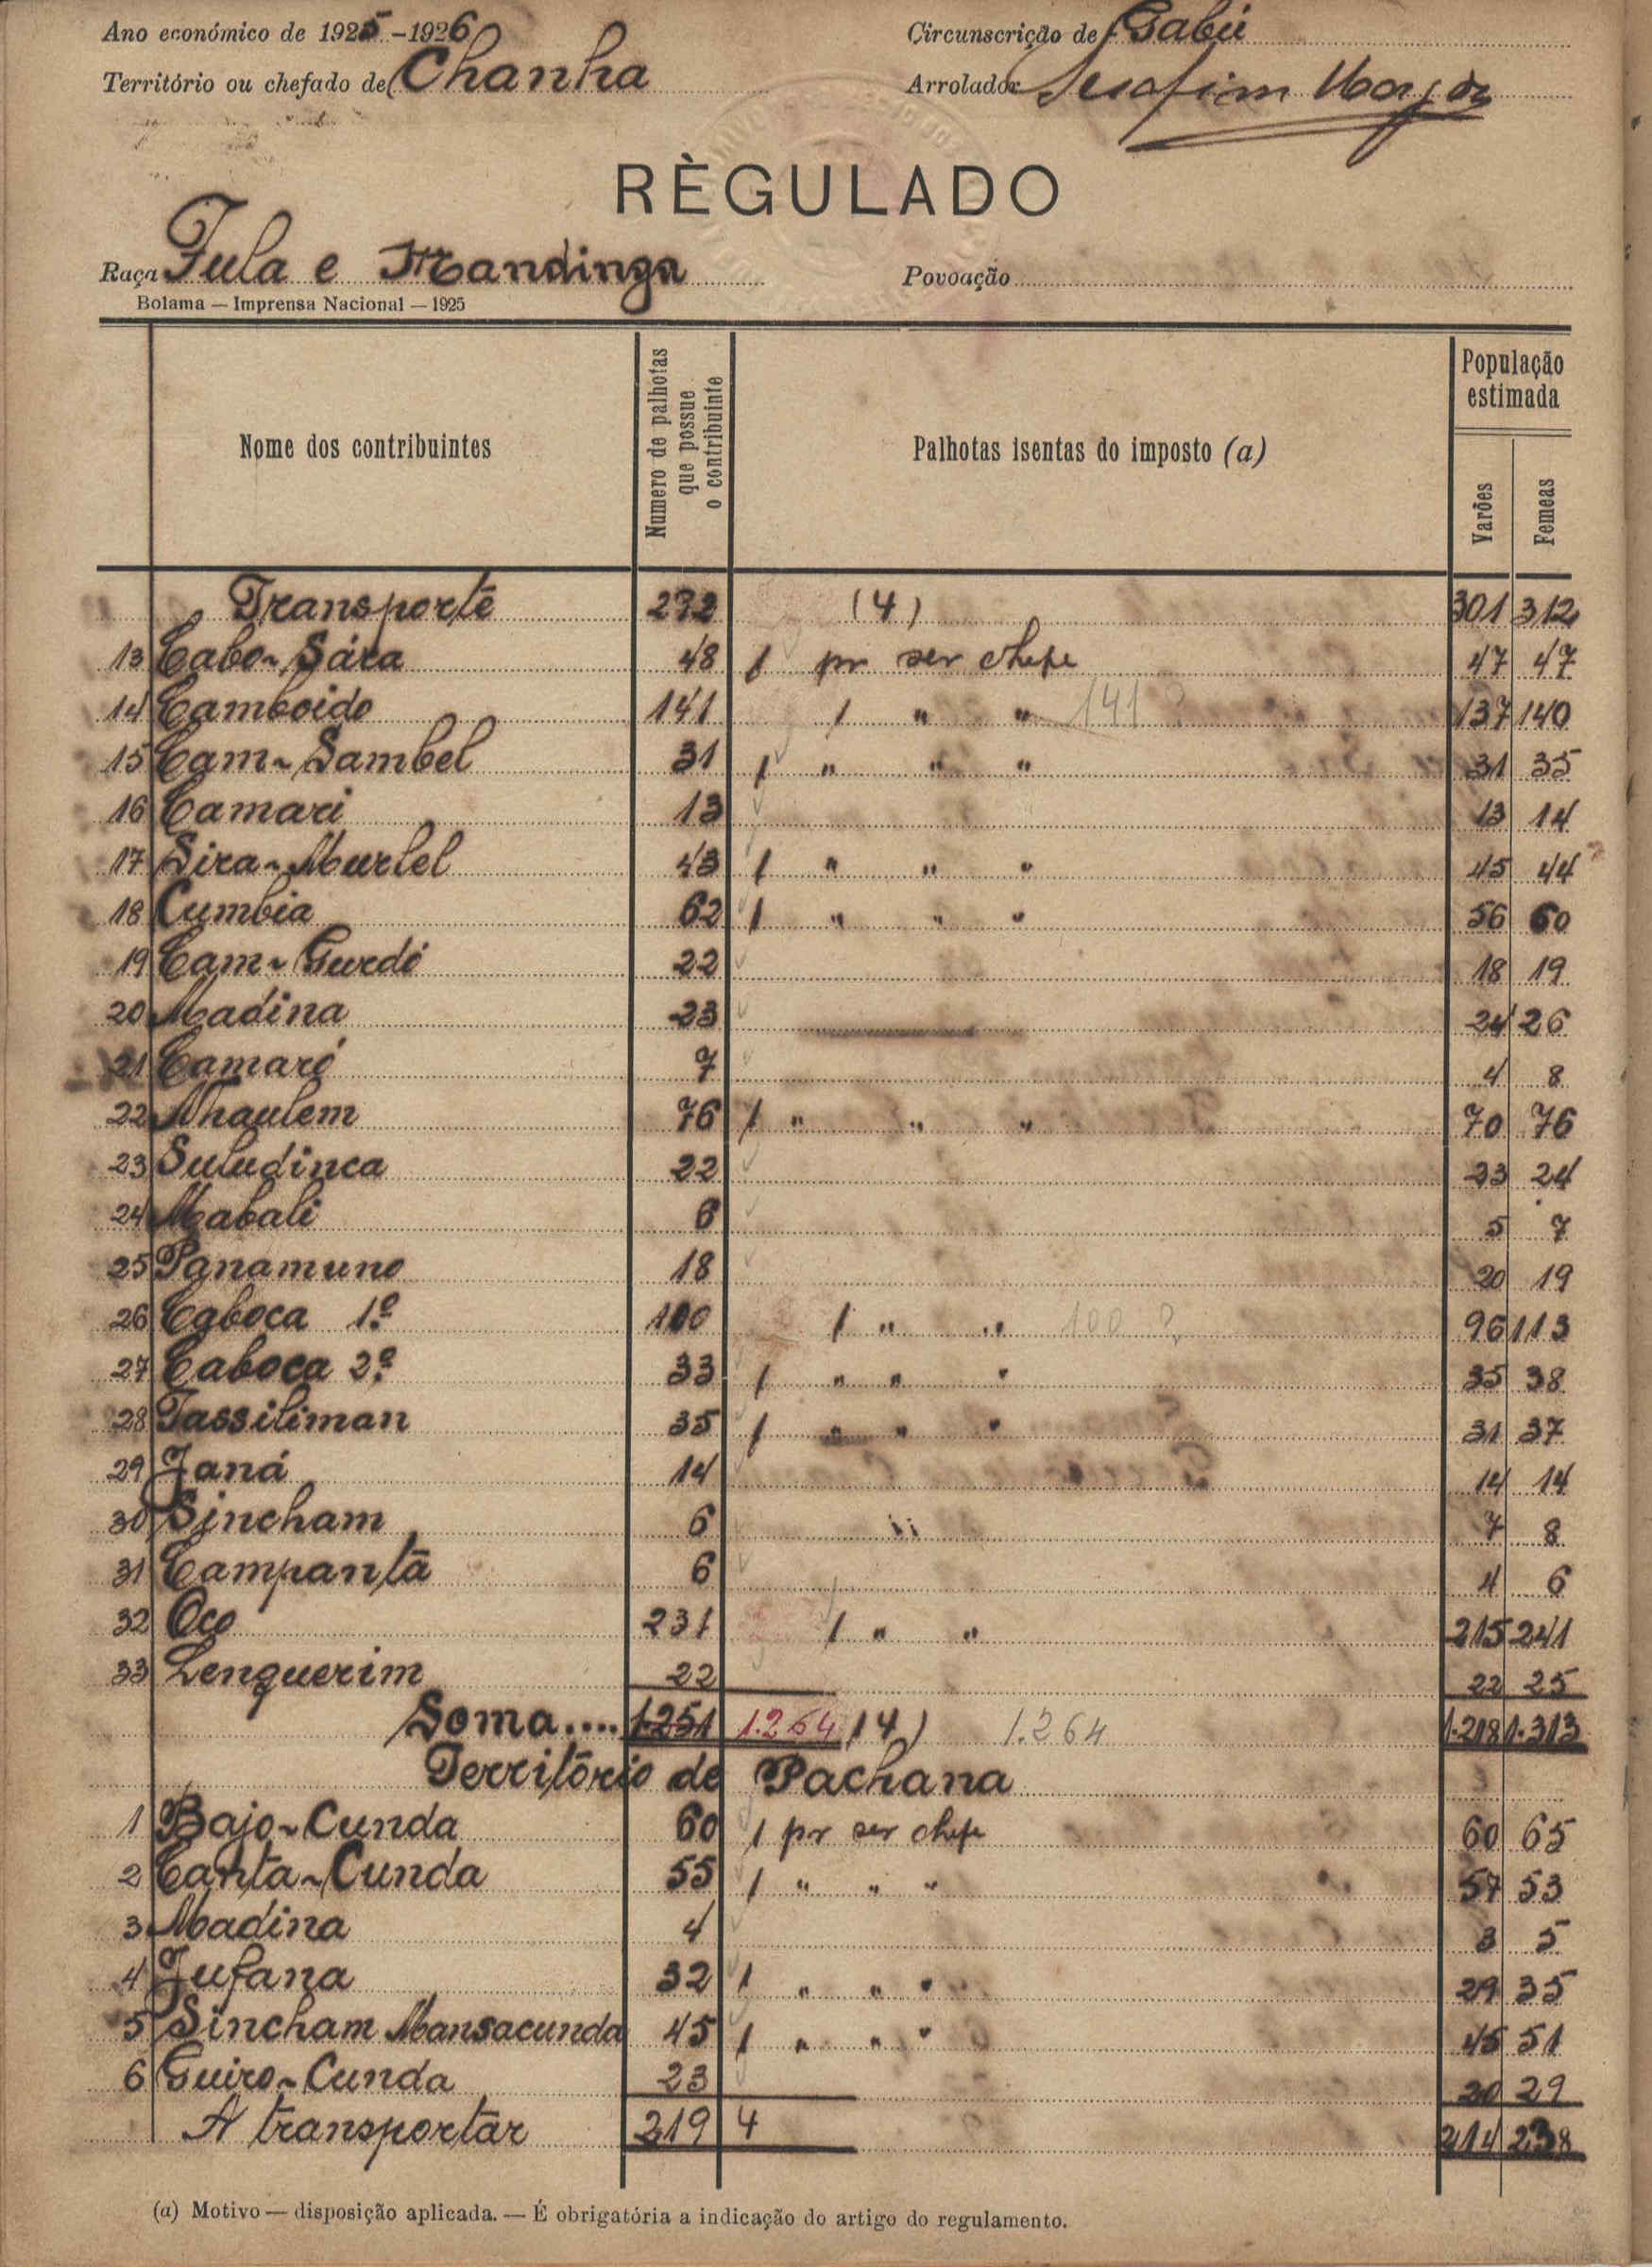 Ano económico de 1925-1926 Circunscrição de Gabú
Território ou chefado de Chanha Arrolador Serafim
RÈGULADO
Raça Fula e Mandinga Povoação
Bolama — Imprensa Nacional — 1925
Nome dos contribuintes Numero de palhotas que possue o contribuinte Palhotas isentas do imposto (a) População estimada Varões Femeas
Transporte 292 (4) 301 312
13 Cabo-Sára 48 1 pr ser chefe 47 47
14 Camboido 141 1 " " 141 ? 137 140
15 Cam-Sambel 31 1 " " " 31 35
16 Camari 13 13 14
17 Sira-Murlel 43 1 " " " 45 44
18 Cumbia 62 1 " " " 56 60
19 Cam-Gurdó 22 18 19
20 Madina 23 24 26
21 Camaró 7 4 8
22 Nhaulem 76 1 " " " 70 76
23 Suludinca 22 23 24
24 Mabali 6 5 7
25 Panamuno 18 20 19
26 Caboca 1º 100 1 " " 100 ? 96 113
27 Caboca 2º 33 1 " " " 35 38
28 Tassiliman 35 1 " " " 31 37
29 Janá 14 14 14
30 Sincham 6 " 7 8
31 Campantã 6 4 6
32 Oco 231 1 " " 215 241
33 Lenquerim 22 22 25
Soma.... 1251 1.264 (4) 1.264 1.218 1.313
Território de Pachana
1 Bajo-Cunda 60 1 pr ser chefe 60 65
2 Canta-Cunda 55 1 " " " 57 53
3 Madina 4 3 5
4 Jufana 32 1 " " " 29 35
5 Sincham Mansacunda 45 1 " " " 45 51
6 Guiro-Cunda 23 20 29
A transportar 219 4 214 238
(a) Motivo — disposição aplicada. — É obrigatória a indicação do artigo do regulamento.